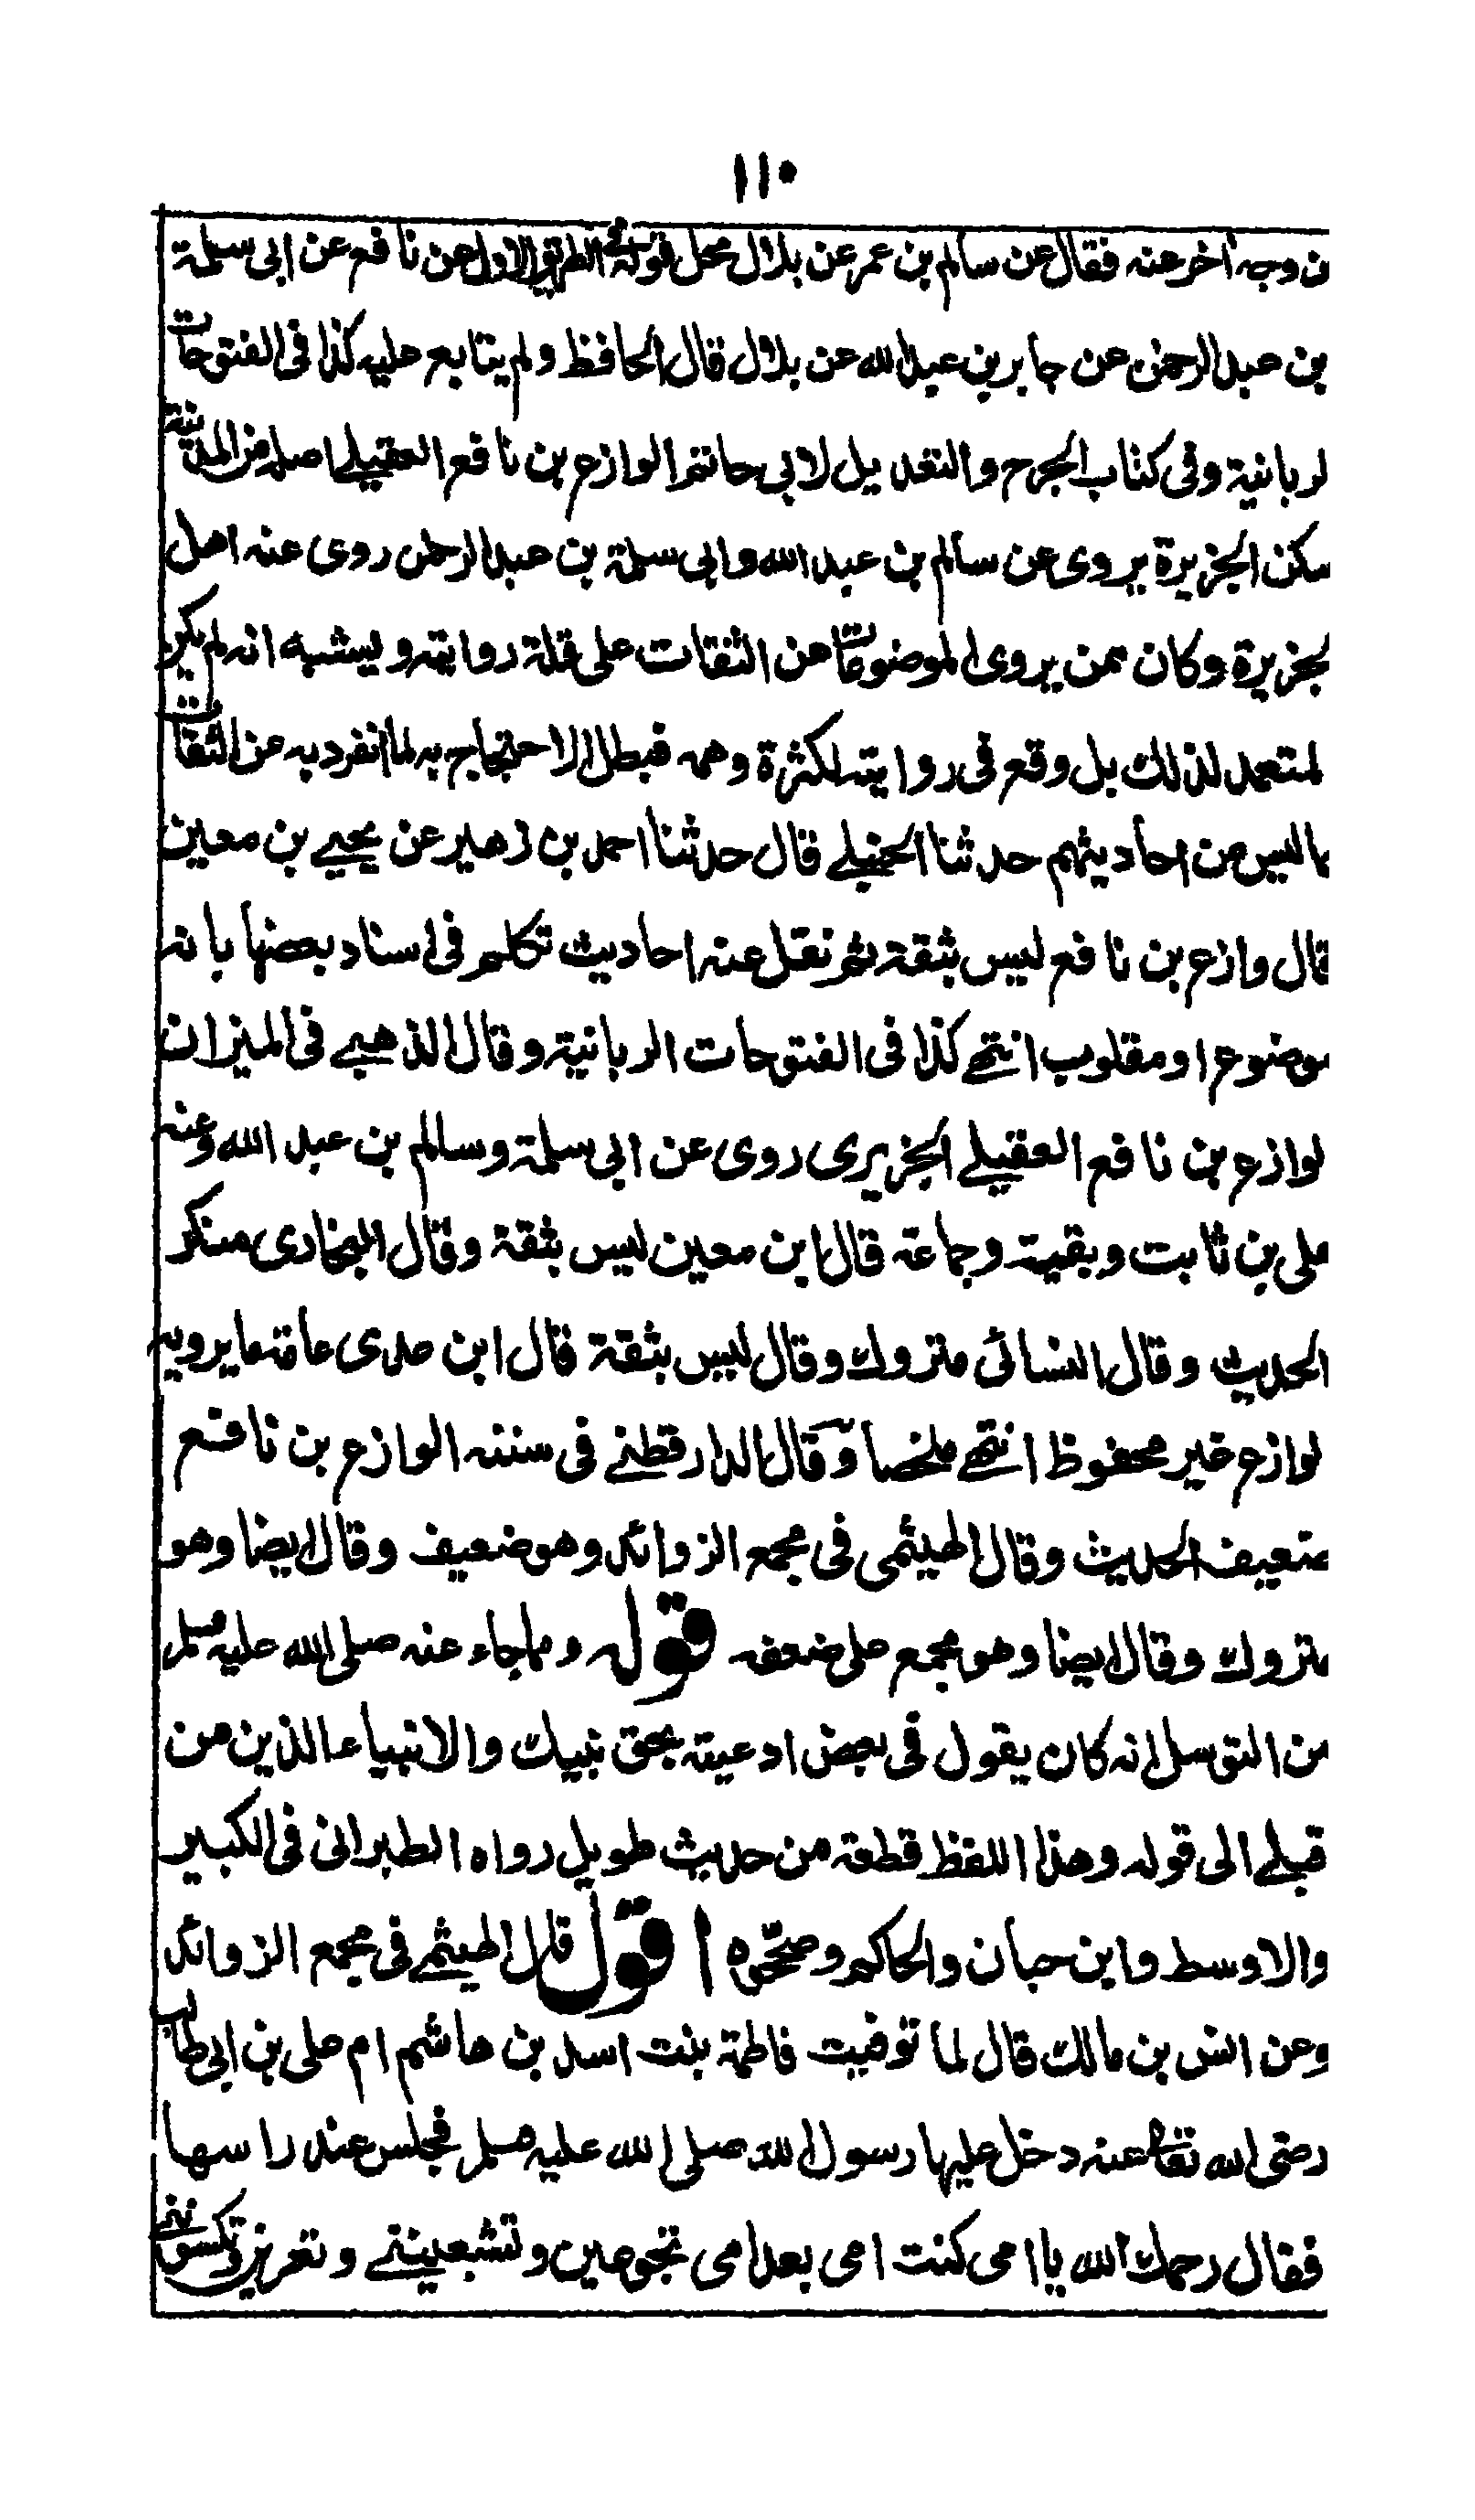 ١١٠
ن وجه آخر عنه فقال عن سالم بن عمر عن بلال محل قوله في الطريق الاول عن نافع عن ابى سلمة
بن عبد الرحمن عن جابر بن عبد الله عن بلال قال الحافظ ولم يتابع عليه كذا فى الفتوحات
لربانية وفى كتاب الجرح والتعديل لابى حاتم الوازع بن نافع العقيلے اصله من المدينة
سكن الجزيرة يروى عن سالم بن عبد الله وابى سلمة بن عبد الرحمن روى عنه اهل
لجزيرة وكان ممن يروى الموضوعات عن الثقات على قلة روايته ويشبه انه لم يكن
لمتعمد لذلك بل وقع فى روايته لكثرة وهمه فبطل الاحتجاج به لما انفرد به عن الثقات
ما ليس من احاديثهم حدثنا الحنبلے قال حدثنا احمد بن زهير عن يحيے بن معين
قال وازع بن نافع ليس بثقة ثم نقل عنه احاديث تكلم فى اسناد بعضها بانه
موضوع او مقلوب انتهے كذا فى الفتوحات الربانية وقال الذهبے فى الميزان
لوازع بن نافع العقيلے الجزيرى روى عن ابى سلمة وسالم بن عبد الله وعنه
على بن ثابت وبقية وجماعة قال ابن معين ليس بثقة وقال البخارى منكر
الحديث وقال النسائى متروك وقال ليس بثقة قال ابن عدى عامة ما يرويه
لوازع غير محفوظ انتهے ملخصا وقال الدارقطنے فى سننه الوازع بن نافع
ضعيف الحديث وقال الهيثمى فى مجمع الزوائد وهو ضعيف وقال ايضا وهو
متروك وقال ايضا وهو مجمع على ضعفه قوله ومما جاء عنه صلى الله عليه وسلم
من التوسل انه كان يقول فى بعض ادعيته بحق نبيك والانبياء الذين من
قبلے الى قوله وهذا اللفظ قطعة من حديث طويل رواه الطبرانى فى الكبير
والاوسط وابن حبان والحاكم وصححوه اقول قال الهيثمے فى مجمع الزوائد
وعن انس بن مالك قال لما توفيت فاطمة بنت اسد بن هاشم ام على بن ابى طالب
رضى الله تعالى عنه دخل عليها رسول الله صلى الله عليه وسلم فجلس عند راسها
فقال رحمك الله يا امى كنت امى بعد امى تجوعين وتشبعينے وتعرين وتكسيننے